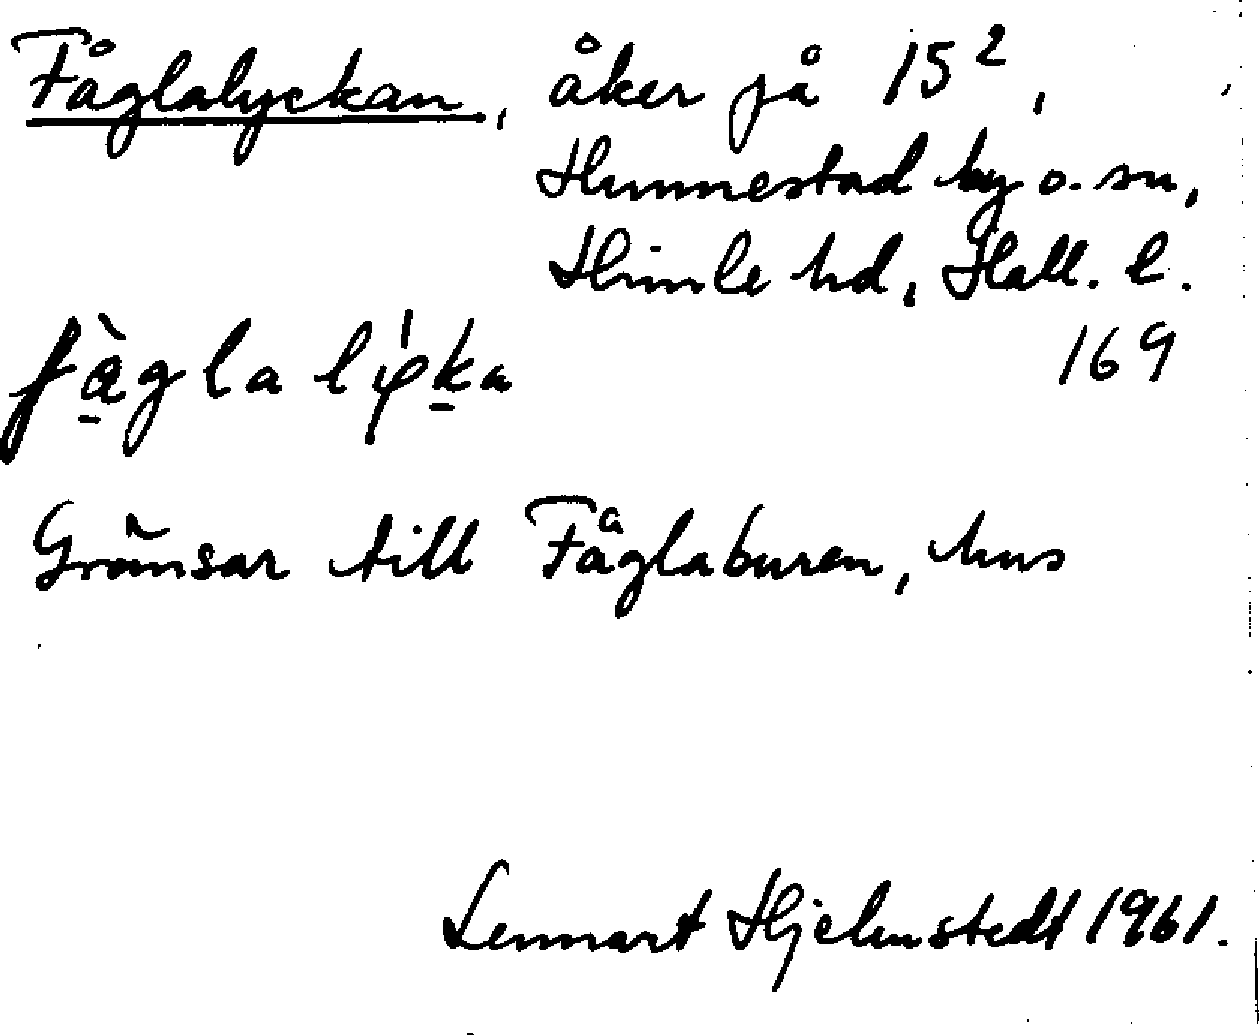 Fåglalyckan, åker på 15²,
Hunnestad by o. sn,
Himle hd, Hall. l.
169
Gränsar till Fåglaburen, hus
Lennart Hjelmstedt 1961.